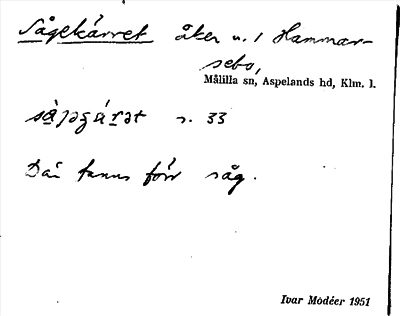 Sågekärret åker u. 1 Hammar-
sebo,
Målilla sn, Aspelands hd, Klm. l.
s. 33
Där fanns förr såg.
Ivar Modéer 1951